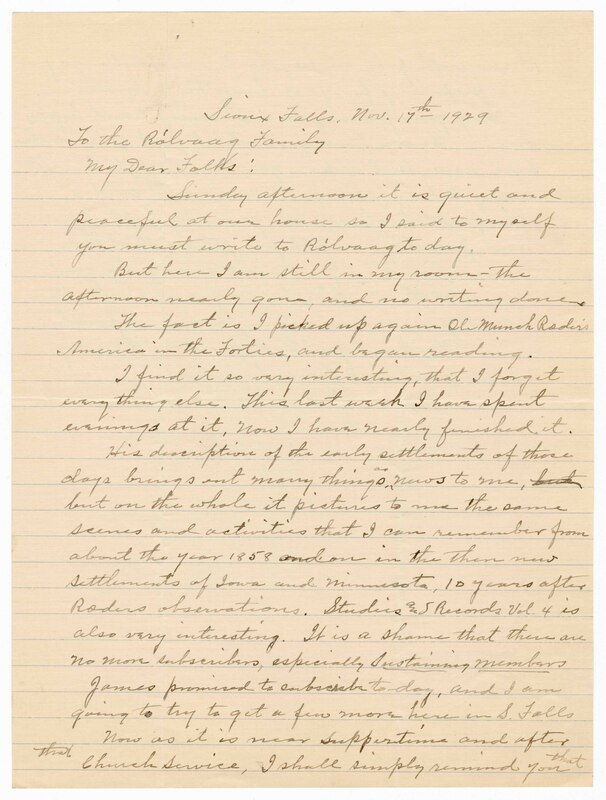 Sioux Falls, Nov. 17th 1929
To the Rölvaag Family
My Dear Folks!
Sunday afternoon it is quiet and
peaceful at our house so I said to myself
you must write to Rölvaag to day.
But here I am still in my room - the
afternoon nearly gone, and no writing done.
The fact is I picked up again Ole Munch Ræder's
America in the Forties, and began reading.
I find it so very interesting, that I forget
everything else. This last week I have spent
evenings at it, Now I have nearly finished it.
His description of the early settlements of those
days brings out many things as news to me, but
but on the whole it pictures to me the same
scenes and activities that I can remember from
about the year 1858 and on in the then new
settlements of Iowa and Minnesota, 10 years after
Ræders observations. Studies & Records Vol. 4 is
also very interesting. It is a shame that there are
no more subscribers, especially Sustaining members
James promised to subscribe to-day, and I am
going to try to get a few more here in S. Falls
Now as it is near suppertime and after
that Church Service, I shall simply remind you that